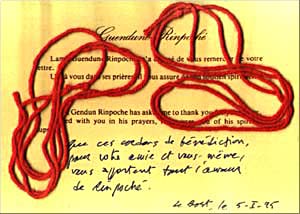 Guendune Rinpoché
Lama Guendune Rinpoché a de vous remercier de votre
lettre.
vous dans ses prières vous assure de son soutien spirituel.
Gendun Rinpoche has asked to thank you
with you in his prayers, of his
Que ces cordons de bénédiction,
pour votre amie et vous-même,
vous apportent tout l'amour
de Rinpoché.
Le Bost, le 5-I-95